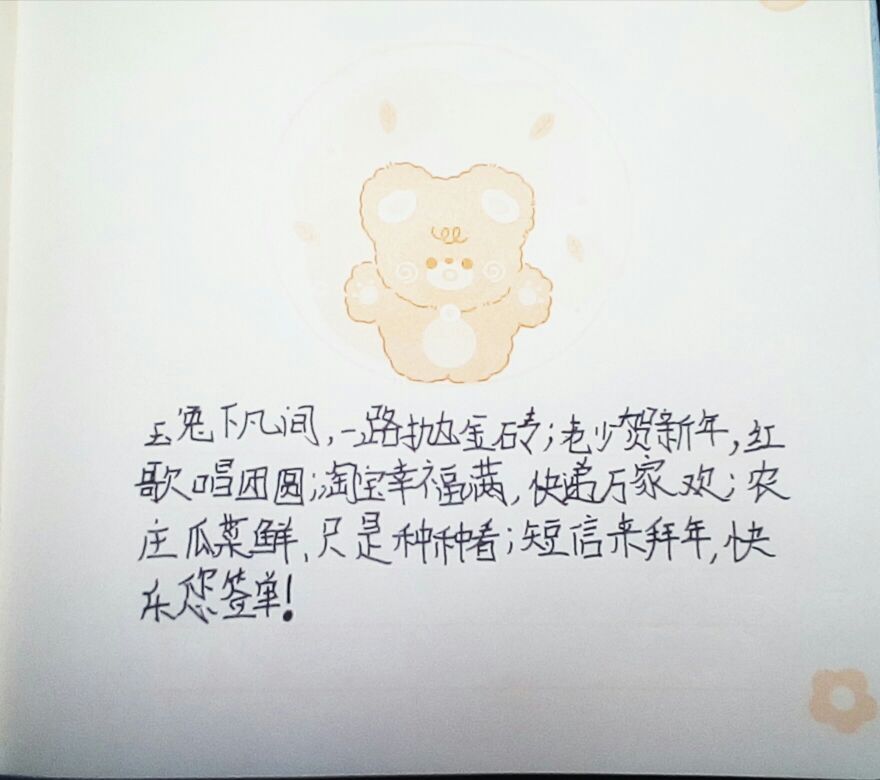 玉兔下凡间,一路抛金砖;老少贺新年,红
歌唱团圆;淘宝幸福满,快递万家欢;农
庄瓜菜鲜,只是种种看;短信来拜年,快
乐您签单!